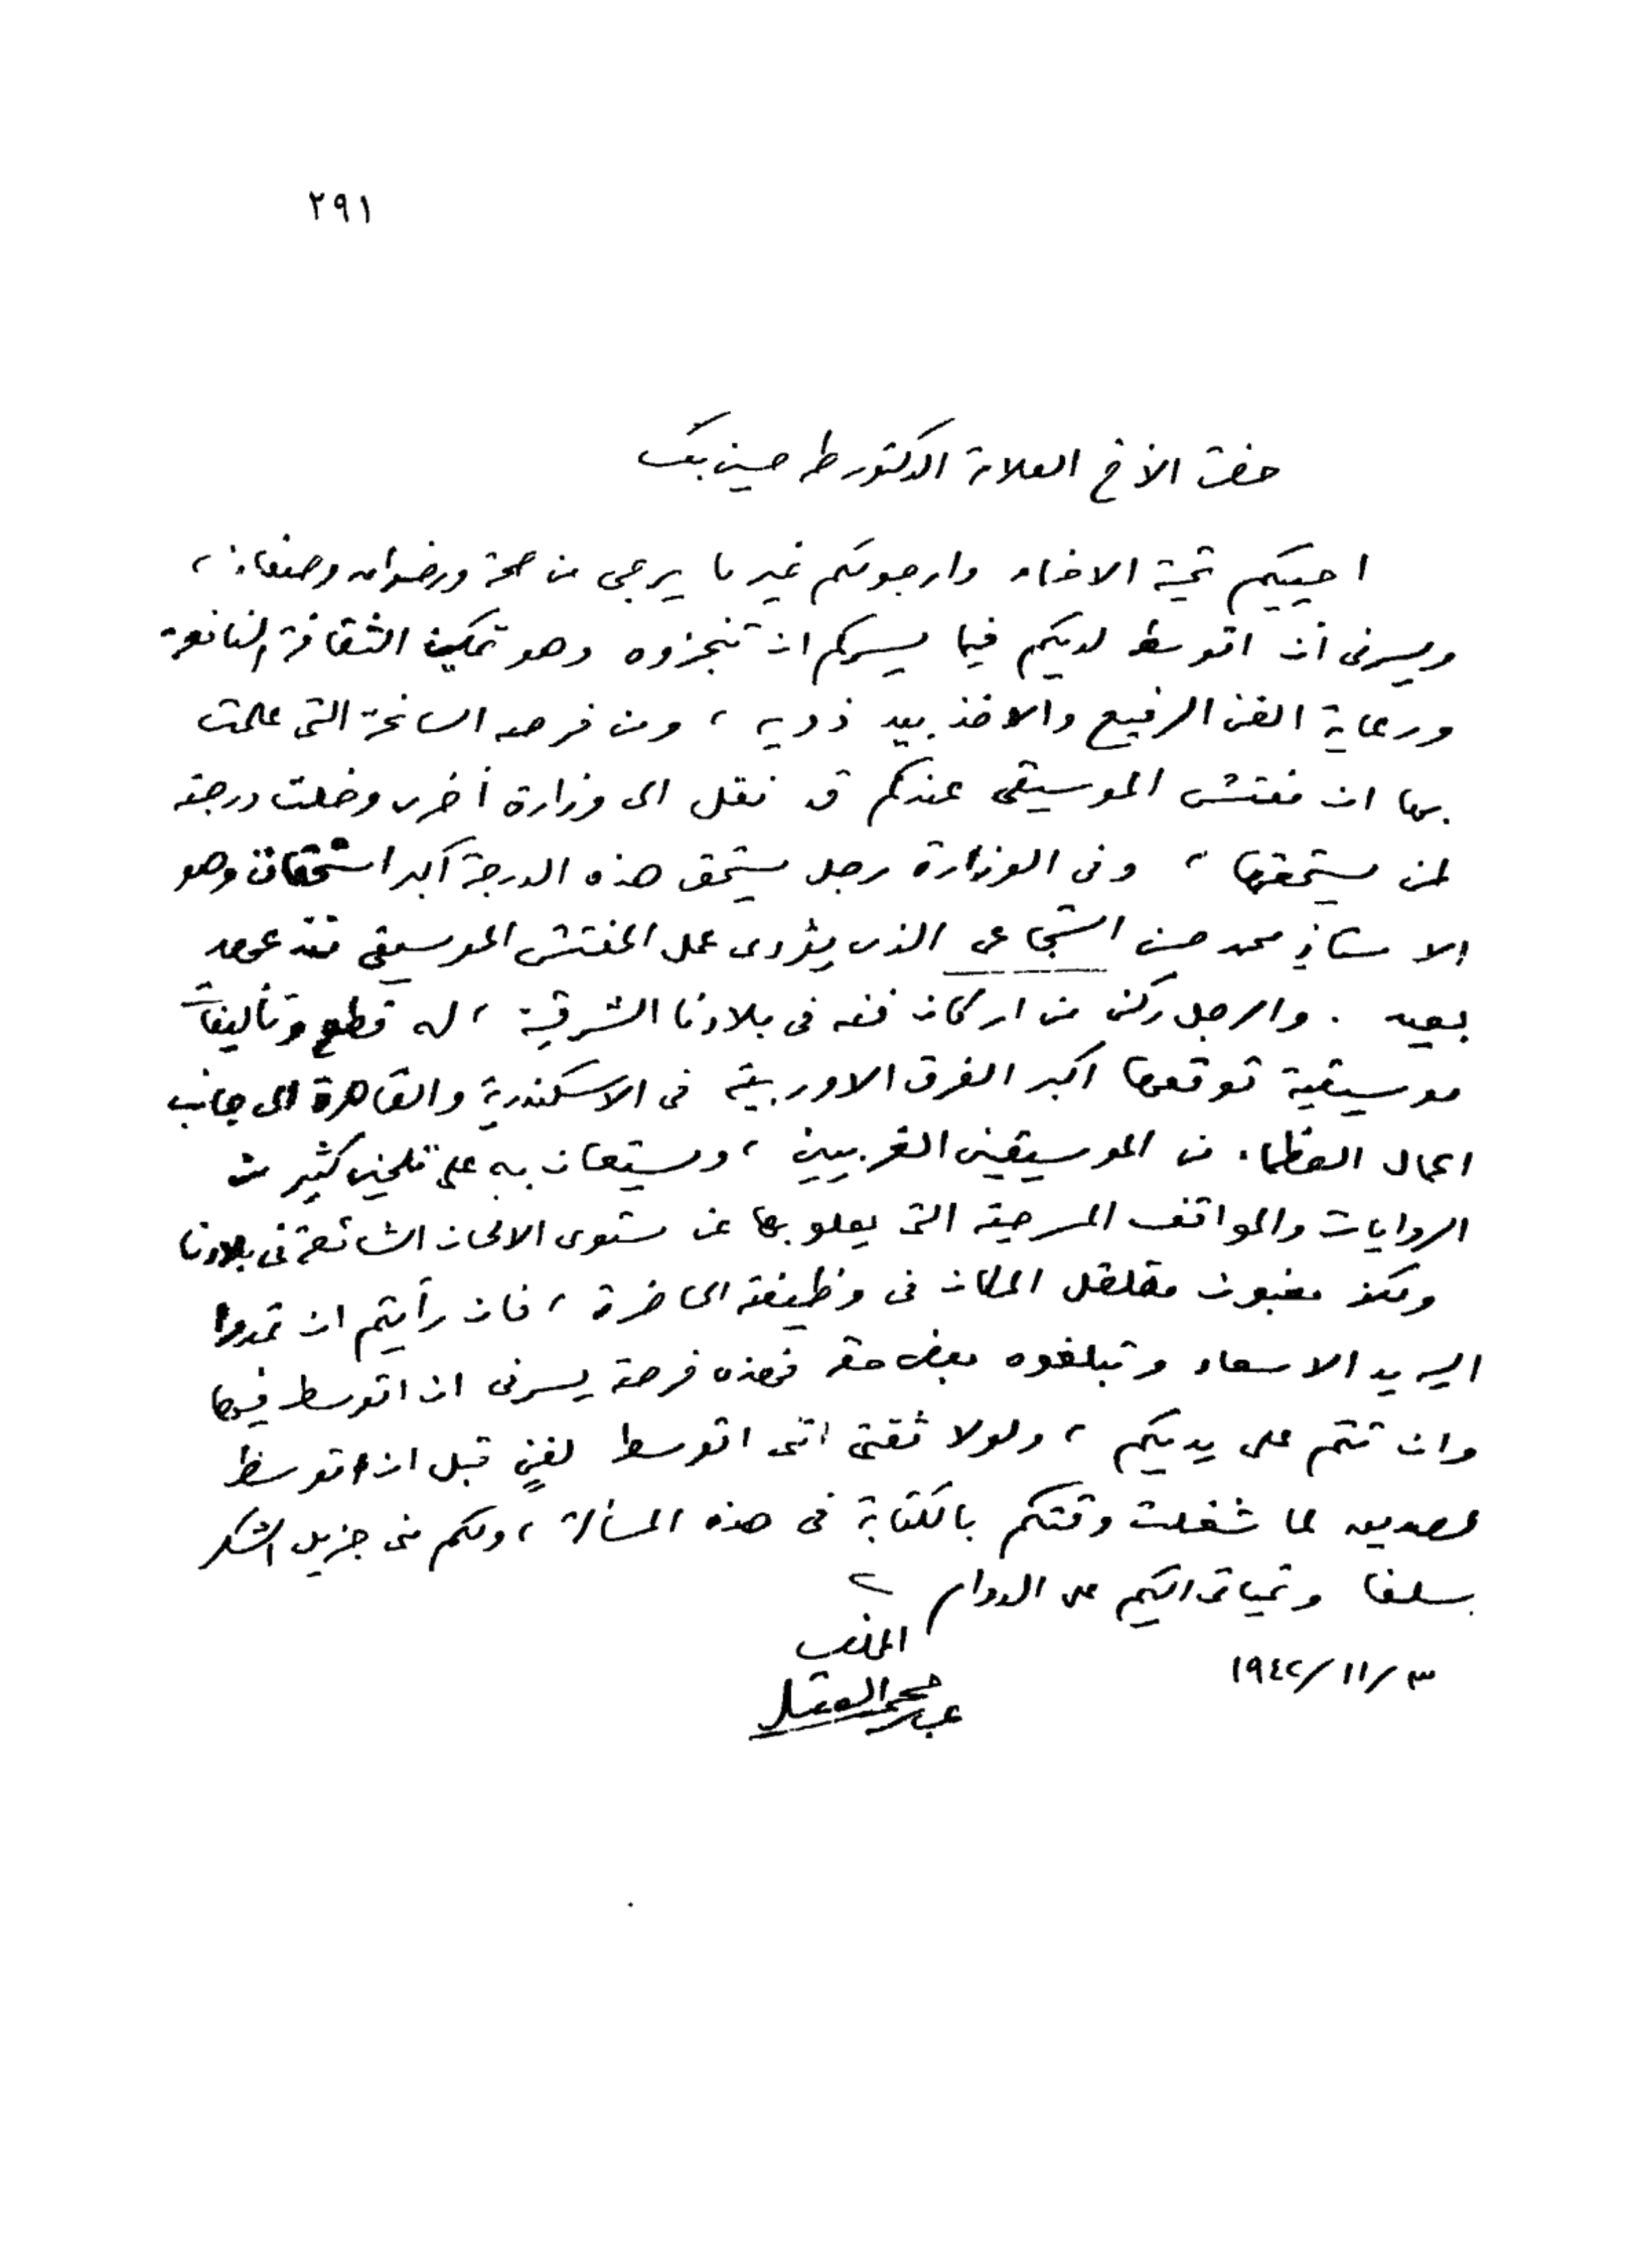 ٢٩١
حضرة الأخ العلامة الدكتور طه حسين بك
احييكم تحية الاخاء وارجو لكم خير ما يرجى من صحة ورضوان وصفاء ،
ويسرنى أن اتوسط لديكم فيما يسركم ان تنجزوه وهو تمكين الثقافة النافعة
ورعاية الفن الرفيع والاخذ بيد ذويه ، ومن فرصه السانحة التى علمت
بها ان مفتش الموسيقى عندكم قد نقل الى وزارة أخرى وخلت درجته
لمن يستحقها ، وفى الوزارة رجل يستحق هذه الدرجة أكبر استحقاق وهو
الاستاذ محمد حسن الشجاعى الذى يؤدى عمل المفتش الموسيقى منذ عهد
بعيد . والرجل ركن من اركان فنه فى بلادنا الشرقية ، له قطع وتأليفات
موسيقية توقعها اكبر الفرق الاوربية فى الاسكندرية والقاهرة الى جانب
اعمال العظماء من الموسيقيين الغربيين ، ويستعان به على تلحين كثير من
الروايات والمواقف المسرحية التى يعلو بها عن مستوى الالحان الشائعة فى بلادنا
ولكنه مغبون مقلقل المكان فى وظيفته الحاضرة ، فان رأيتم ان تمدوا
اليه يد الاسعاد وتبلغوه بعض حقه فهذه فرصة يسرنى ان اتوسط فيها
وان تتم على يديكم ، ولولا ثقتى اننى اتوسط لفنٍ قبل ان اتوسط
لصديق لما شغلت وقتكم بالكتابة فى هذه المسألة ، ولكم منى جزيل الشكر
سلفا وتحياتى اليكم على الدوام
المخلص
٣/١١/١٩٤٢
عباس محمود العقاد